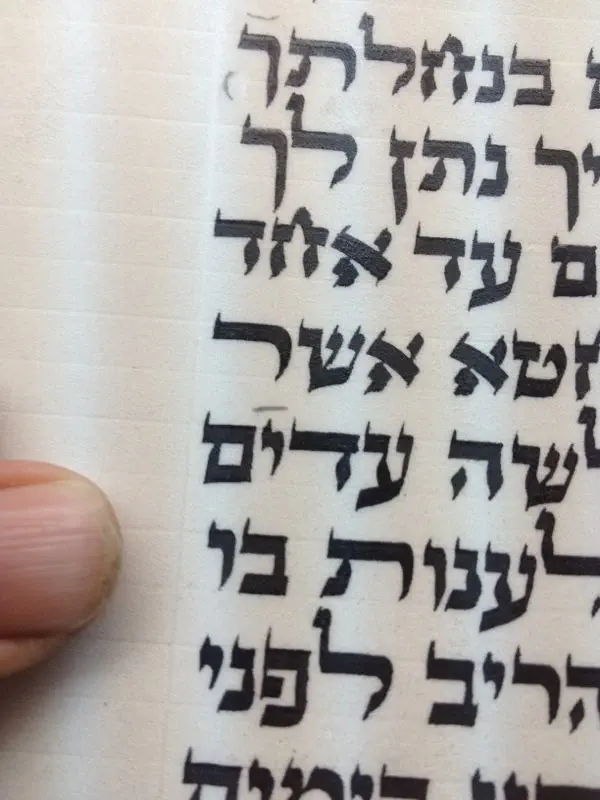 ם בנחלתך
יך נתן לך
ם עד אחד
חטא אשר
לשה עדים
לענות בו
הריב לפני